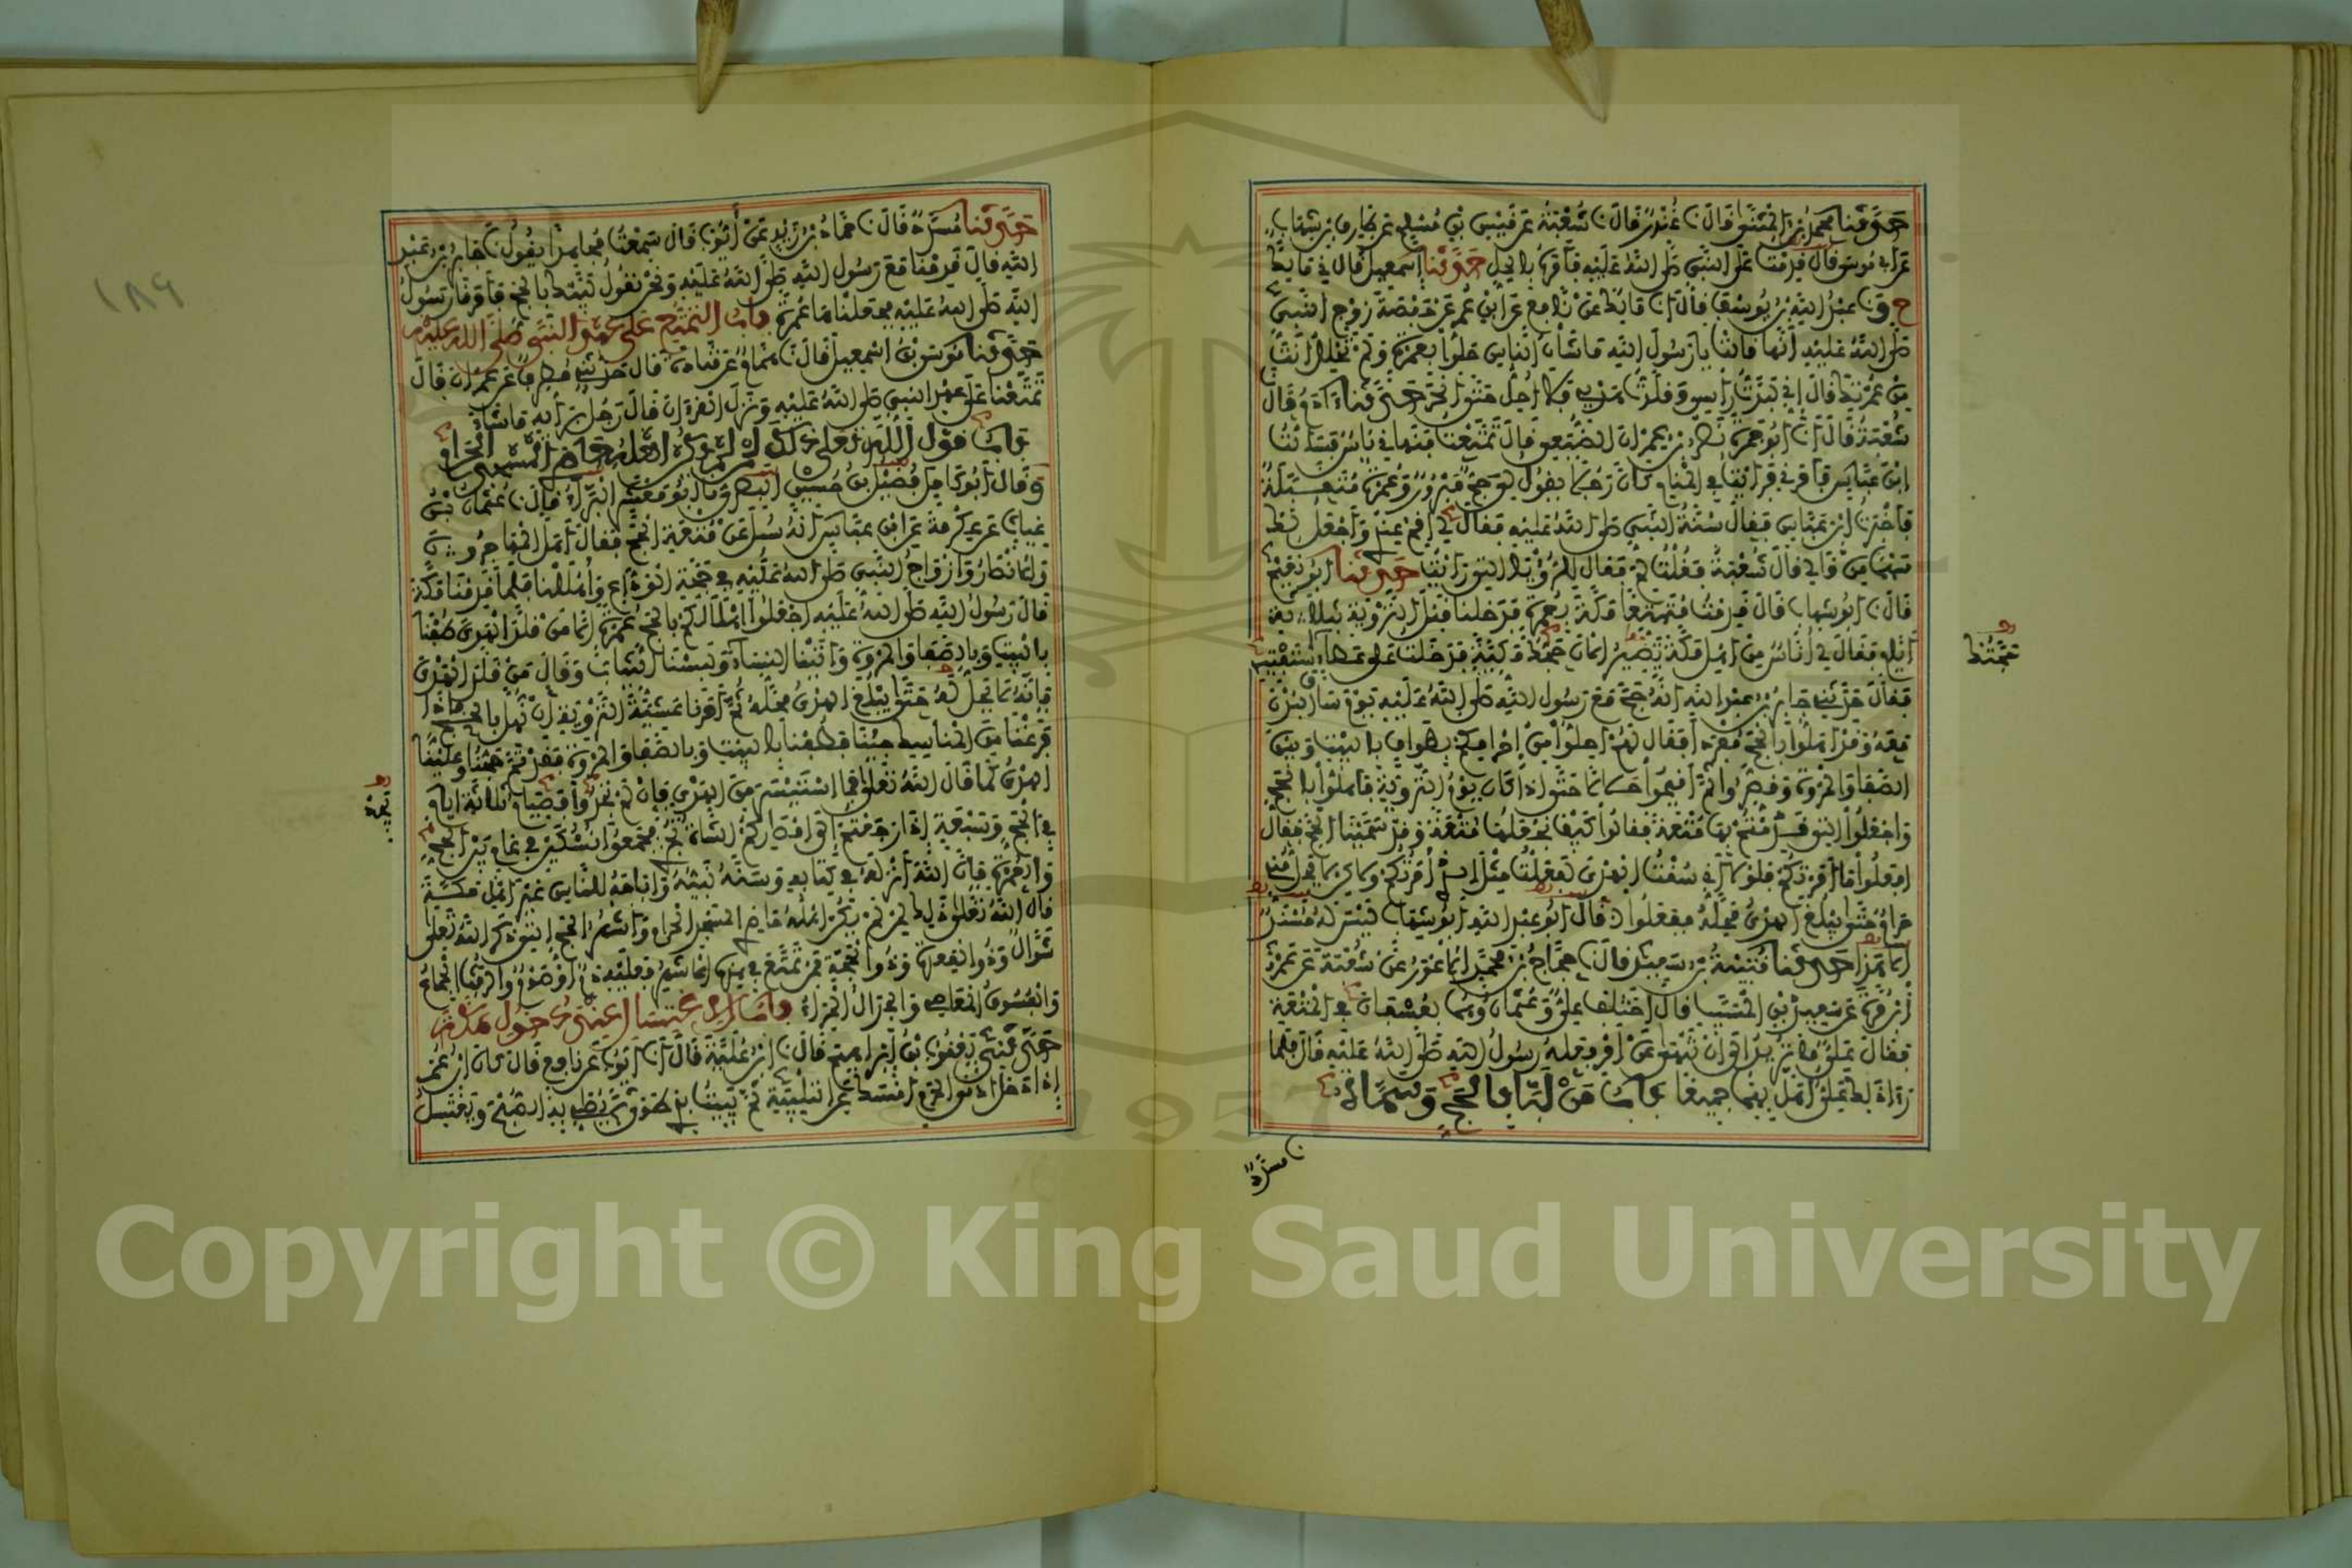 حدثنا محمد بن المثنى قال نا غندر قال نا شعبة عن قيس بن مسلم عن طارق بن شهاب
عن أبي موسى قال قدمت على النبي صلى الله عليه فأمره بالحل حدثنا إسمعيل قال ني مالك
ح ونا عبد الله بن يوسف قال أنا مالك عن نافع عن ابن عمر عن حفصة زوج النبي
صلى الله عليه أنها قالت يا رسول الله ما شأن الناس حلوا بعمرة ولم تحلل أنت
من عمرتك قال إني لبدت رأسي وقلدت هديي فلا أحل حتى أنحر حدثنا آدم قال
شعبة قال أنا أبو جمرة نصر بن عمران الضبعي قال تمتعت فنهاني ناس فسألت
ابن عباس فأمرني فرأيت في المنام كأن رجلا يقول لي حج مبرور وعمرة متقبلة
فأخبرت ابن عباس فقال سنة النبي صلى الله عليه فقال لي أقم عندي وأجعل لك
سهما من مالي قال شعبة فقلت لم فقال للرؤيا التي رأيت حدثنا أبو نعيم
قال نا أبو شهاب قال قدمت متمتعا مكة بعمرة فدخلنا قبل التروية بثلاثة
أيام فقال لي أناس من أهل مكة تصير الآن حجتك مكية فدخلت على عطاء أستفتيه
فقال حدثني جابر بن عبد الله أنه حج مع رسول الله صلى الله عليه يوم ساق البدن
معه وقد أهلوا بالحج مفردا فقال لهم أحلوا من إحرامكم بطواف بالبيت وبين
الصفا والمروة وقصروا ثم أقيموا حلالا حتى إذا كان يوم التروية فأهلوا بالحج
واجعلوا التي قدمتم بها متعة فقالوا كيف نجعلها متعة وقد سمينا الحج فقال
افعلوا ما أمرتكم فلولا أني سقت الهدي لفعلت مثل الذي أمرتكم ولكن لا يحل مني
حرام حتى يبلغ الهدي محله ففعلوا قال أبو عبد الله أبو شهاب ليس له مسند
إلا هذا حدثنا قتيبة بن سعيد قال نا حجاج بن محمد الأعور عن شعبة عن عمرو
بن مرة عن سعيد بن المسيب قال اختلف علي وعثمان وهما بعسفان في المتعة
فقال علي ما تريد إلى أن تنهى عن أمر فعله رسول الله صلى الله عليه قال فلما
رأى ذلك علي أهل بهما جميعا باب من لبى بالحج وسماه
حجتك
نا مسدد
١٨٩
حدثنا مسدد قال نا حماد بن زيد عن أيوب قال سمعت مجاهدا يقول نا جابر بن عبد
الله قال قدمنا مع رسول الله صلى الله عليه ونحن نقول لبيك بالحج فأمرنا رسول
الله صلى الله عليه فجعلناها عمرة باب التمتع على عهد النبي صلى الله عليه
حدثنا موسى بن إسمعيل قال نا همام عن قتادة قال حدثني مطرف عن عمران قال
تمتعنا على عهد النبي صلى الله عليه ونزل القرآن قال رجل برأيه ما شاء
باب قول الله تعالى ذلك لمن لم يكن أهله حاضري المسجد الحرام
وقال أبو كامل فضيل بن حسين البصري نا أبو معشر البراء قال نا عثمان بن
غياث عن عكرمة عن ابن عباس أنه سئل عن متعة الحج فقال أهل المهاجرون
والأنصار وأزواج النبي صلى الله عليه في حجة الوداع وأهللنا فلما قدمنا مكة
قال رسول الله صلى الله عليه اجعلوا إهلالكم بالحج عمرة إلا من قلد الهدي طفنا
بالبيت وبالصفا والمروة وأتينا النساء ولبسنا الثياب وقال من قلد الهدي
فإنه لا يحل له حتى يبلغ الهدي محله ثم أمرنا عشية التروية أن نهل بالحج فإذا
فرغنا من المناسك جئنا فطفنا بالبيت وبالصفا والمروة فقد تم حجنا وعلينا
الهدي كما قال الله تعالى فما استيسر من الهدي فإن لم تجدوا فصيام ثلاثة أيام
في الحج وسبعة إذا رجعتم إلى أمصاركم الشاة تجزي فجمعوا نسكين في عام بين الحج
والعمرة فإن الله أنزله في كتابه وسنه نبيه وأباحه للناس غير أهل مكة
قال الله تعالى ذلك لمن لم يكن أهله حاضري المسجد الحرام وأشهر الحج التي ذكر الله تعالى
شوال وذو القعدة وذو الحجة فمن تمتع في هذه الأشهر فعليه دم أو صوم والرفث الجماع
والفسوق المعاصي والجدال المراء باب الاغتسال عند دخول مكة
حدثني يعقوب بن إبراهيم قال نا ابن علية قال أنا أيوب عن نافع قال كان ابن عمر
إذا دخل أدنى الحرم أمسك عن التلبية ثم يبيت بذي طوى ثم يصلي به الصبح ويغتسل
Copyright © King Saud University
1957